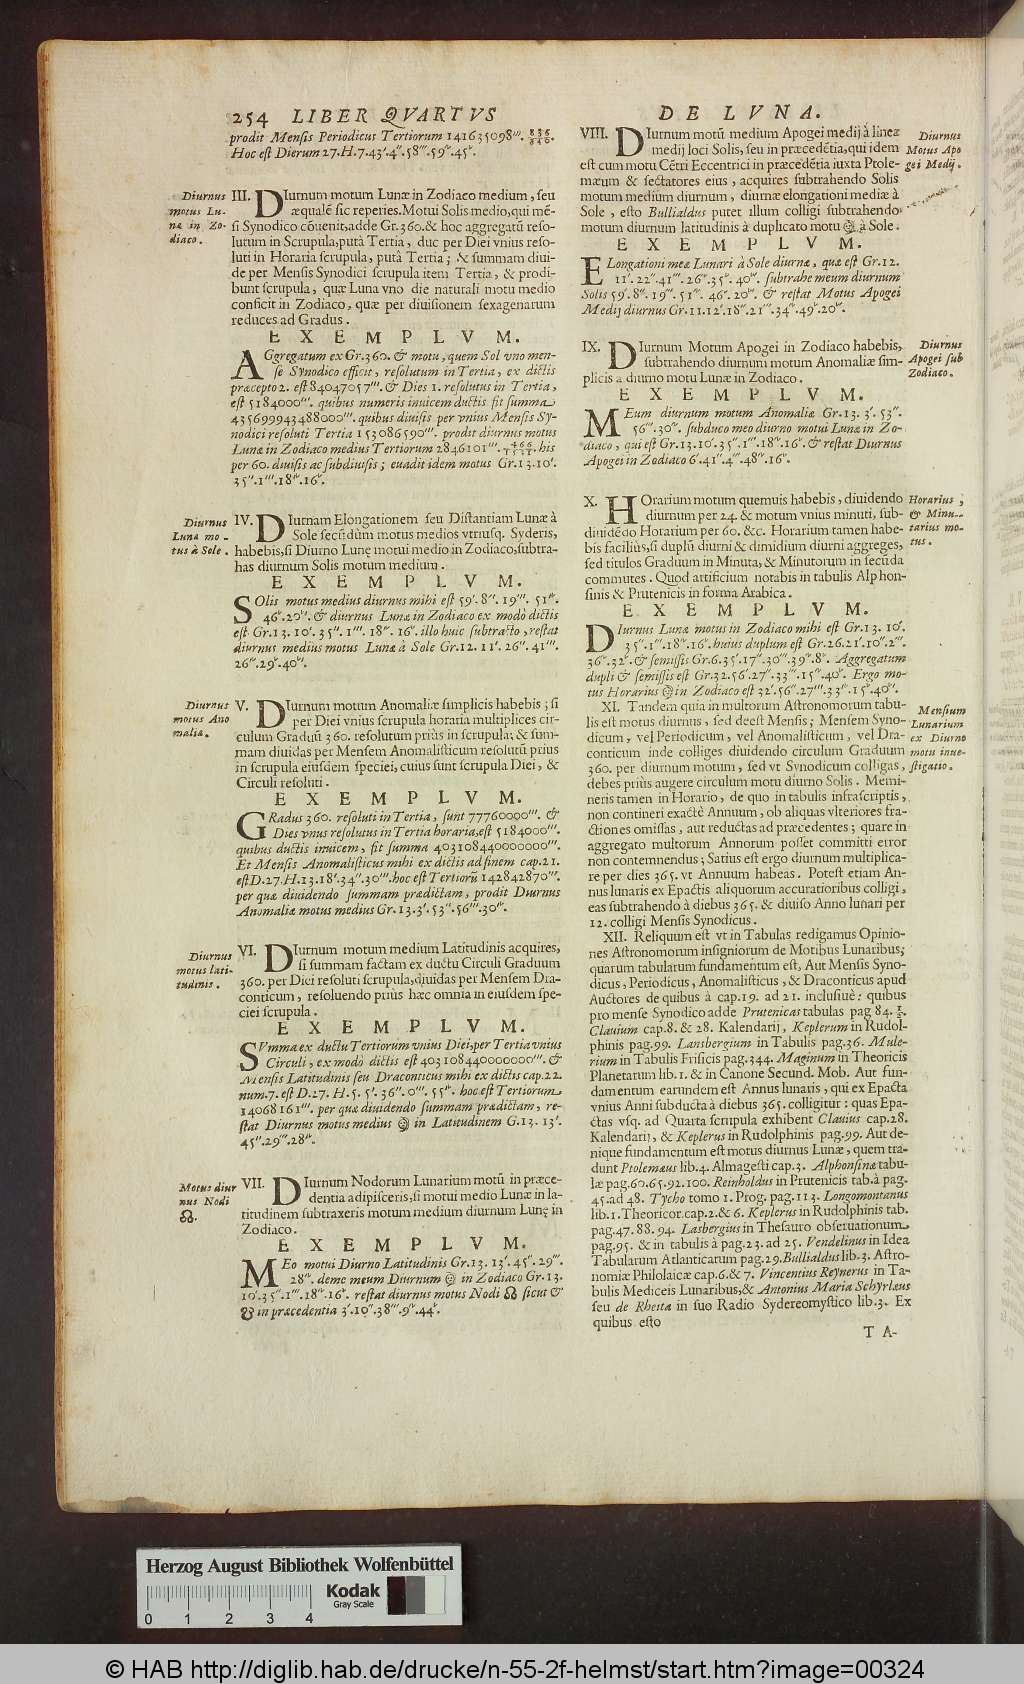 254 LIBER QVARTVS
prodit Mensis Periodicus Tertiorum 141635098'''.
Hoc est Dierum 27.H.7.43'.4''.58'''.59''.45''.
Diurnus
motus Lu-
næ in Zo-
diaco.
III. DIurnum motum Lunæ in Zodiaco medium, seu
æqualē sic reperies. Motui Solis medio, qui mē-
si Synodico cōuenit, adde Gr.360. & hoc aggregatū reso-
lutum in Scrupula, putà Tertia, duc per Diei vnius reso-
luti in Horaria scrupula, putà Tertia; & summam diui-
de per Mensis Synodici scrupula item Tertia, & prodi-
bunt scrupula, quæ Luna vno die naturali motu medio
conficit in Zodiaco, quæ per diuisionem sexagenarum
reduces ad Gradus.
EXEMPLVM.
AGgregatum ex Gr.360. & motu, quem Sol vno men-
se Synodico efficit, resolutum in Tertia, ex dictis
præcepto 2. est 84047057'''. & Dies 1. resolutus in Tertia,
est 5184000'''. quibus numeris inuicem ductis fit summa
435699943488000'''. quibus diuisis per vnius Mensis Sy-
nodici resoluti Tertia 153086590'''. prodit diurnus motus
Lunæ in Zodiaco medius Tertiorum 2846101'''. his
per 60. diuisis ac subdiuisis; euadit idem motus Gr.13.10'.
35''.1'''.18''.16''.
Diurnus
Lunæ mo-
tus à Sole.
IV. DIurnam Elongationem seu Distantiam Lunæ à
Sole secūdùm motus medios vtriusq. Syderis,
habebis, si Diurno Lunę motui medio in Zodiaco, subtra-
has diurnum Solis motum medium.
EXEMPLVM.
SOlis motus medius diurnus mihi est 59'.8''.19'''.51''.
46''.20''. & diurnus Lunæ in Zodiaco ex modò dictis
est Gr.13.10'.35''.1'''.18''.16''. illo huic subtracto, restat
diurnus medius motus Lunæ à Sole Gr.12.11'.26''.41'''.
26''.29''.40''.
Diurnus
motus Ano
maliæ.
V. DIurnum motum Anomaliæ simplicis habebis; si
per Diei vnius scrupula horaria multiplices cir-
culum Graduū 360. resolutum priùs in scrupula; & sum-
mam diuidas per Mensem Anomalisticum resolutū prius
in scrupula eiusdem speciei, cuius sunt scrupula Diei, &
Circuli resoluti.
EXEMPLVM.
GRadus 360. resoluti in Tertia, sunt 77760000'''. &
Dies vnus resolutus in Tertia horaria, est 5184000'''.
quibus ductis inuicem, fit summa 403108440000000'''.
Et Mensis Anomalisticus mihi ex dictis ad finem cap.21.
est D.27.H.13.18'.34''.30'''. hoc est Tertiorū 142842870'''.
per quæ diuidendo summam prædictam, prodit Diurnus
Anomaliæ motus medius Gr.13.3'.53''.56'''.30''.
Diurnus
motus lati-
tudinis.
VI. DIurnum motum medium Latitudinis acquires,
si summam factam ex ductu Circuli Graduum
360. per Diei resoluti scrupula, diuidas per Mensem Dra-
conticum, resoluendo priùs hæc omnia in eiusdem spe-
ciei scrupula.
EXEMPLVM.
SVmma ex ductu Tertiorum vnius Diei, per Tertia vnius
Circuli, ex modò dictis est 403108440000000'''. &
Mensis Latitudinis seu Draconticus mihi ex dictis cap.22.
num.7. est D.27.H.5.5'.36''.0'''.55''. hoc est Tertiorum
14068161'''. per quæ diuidendo summam prædictam, re-
stat Diurnus motus medius ☽ in Latitudinem G.13.13'.
45''.29'''.28''.
Motus diur
nus Nodi
☊.
VII. DIurnum Nodorum Lunarium motū in præce-
dentia adipisceris, si motui medio Lunæ in la-
titudinem subtraxeris motum medium diurnum Lunę in
Zodiaco.
EXEMPLVM.
MEo motui Diurno Latitudinis Gr.13.13'.45''.29'''.
28''. deme meum Diurnum ☽ in Zodiaco Gr.13.
10'.35''.1'''.18''.16''. restat diurnus motus Nodi ☊ sicut &
☋ in præcedentia 3'.10''.38'''.9''.44''.
DE LVNA.
VIII. DIurnum motū medium Apogei medij à lineæ
medij loci Solis, seu in præcedētia, qui idem
est cum motu Cētri Eccentrici in præcedētia iuxta Ptole-
mæum & sectatores eius, acquires subtrahendo Solis
motum medium diurnum, diurnæ elongationi mediæ à
Sole, esto Bullialdus putet illum colligi subtrahendo
motum diurnum latitudinis à duplicato motu ☽ à Sole.
Diurnus
Motus Apo
gei Medij.
EXEMPLVM.
ELongationi meæ Lunari à Sole diurnæ, quæ est Gr.12.
11'.22''.41'''.26''.35''.40''. subtrahe meum diurnum
Solis 59'.8''.19'''.51''.46''.20''. & restat Motus Apogei
Medij diurnus Gr.11.12'.18''.21'''.34''.49''.20''.
IX. DIurnum Motum Apogei in Zodiaco habebis,
subtrahendo diurnum motum Anomaliæ sim-
plicis a diurno motu Lunæ in Zodiaco.
Diurnus
Apogei sub
Zodiaco.
EXEMPLVM.
MEum diurnum motum Anomaliæ Gr.13.3'.53''.
56'''.30''. subduco meo diurno motui Lunæ in Zo-
diaco, qui est Gr.13.10'.35''.1'''.18''.16''. & restat Diurnus
Apogei in Zodiaco 6'.41''.4'''.48''.16''.
X. HOrarium motum quemuis habebis, diuidendo
diurnum per 24. & motum vnius minuti, sub-
diuidēdo Horarium per 60. &c. Horarium tamen habe-
bis faciliùs, si duplū diurni & dimidium diurni aggreges,
sed titulos Graduum in Minuta, & Minutorum in secūda
commutes. Quod artificium notabis in tabulis Alphon-
sinis & Prutenicis in forma Arabica.
Horarius,
& Minu-
tarius mo-
tus.
EXEMPLVM.
DIurnus Lunæ motus in Zodiaco mihi est Gr.13.10'.
35''.1'''.18''.16''. huius duplum est Gr.26.21'.10''.2'''.
36''.32''. & semissis Gr.6.35'.17''.30'''.39''.8''. Aggregatum
dupli & semissis est Gr.32.56'.27''.33'''.15''.40''. Ergo mo-
tus Horarius ☽ in Zodiaco est 32'.56''.27'''.33''.15''.40''.
XI. Tandem quia in multorum Astronomorum tabu-
lis est motus diurnus, sed deest Mensis; Mensem Syno-
dicum, vel Periodicum, vel Anomalisticum, vel Dra-
conticum inde colliges diuidendo circulum Graduum
360. per diurnum motum, sed vt Synodicum colligas,
debes priùs augere circulum motu diurno Solis. Memi-
neris tamen in Horario, de quo in tabulis infrascriptis,
non contineri exactè Annuum, ob aliquas vlteriores fra-
ctiones omissas, aut reductas ad præcedentes; quare in
aggregato multorum Annorum posset committi error
non contemnendus; Satius est ergo diurnum multiplica-
re per dies 365. vt Annuum habeas. Potest etiam An-
nus lunaris ex Epactis aliquorum accuratioribus colligi,
eas subtrahendo à diebus 365. & diuiso Anno lunari per
12. colligi Mensis Synodicus.
Mensium
Lunarium
ex Diurno
motu inue-
stigatio.
XII. Reliquum est vt in Tabulas redigamus Opinio-
nes Astronomorum insigniorum de Motibus Lunaribus;
quarum tabularum fundamentum est, Aut Mensis Syno-
dicus, Periodicus, Anomalisticus, & Draconticus apud
Auctores de quibus à cap.19. ad 21. inclusiuè: quibus
pro mense Synodico adde Prutenicas tabulas pag 84.
Clauium cap.8. & 28. Kalendarij, Keplerum in Rudol-
phinis pag.99. Lansbergium in Tabulis pag.36. Mule-
rium in Tabulis Frisicis pag.344. Maginum in Theoricis
Planetarum lib.1. & in Canone Secund. Mob. Aut fun-
damentum earundem est Annus lunaris, qui ex Epacta
vnius Anni subducta à diebus 365. colligitur: quas Epa-
ctas vsq. ad Quarta scrupula exhibent Clauius cap.28.
Kalendarij, & Keplerus in Rudolphinis pag.99. Aut de-
nique fundamentum est motus diurnus Lunæ, quem tra-
dunt Ptolemæus lib.4. Almagesti cap.3. Alphonsinæ tabu-
læ pag.60.65.92.100. Reinholdus in Prutenicis tab.à pag.
45.ad 48. Tycho tomo 1. Prog. pag.113. Longomontanus
lib.1.Theoricor.cap.2.& 6. Keplerus in Rudolphinis tab.
pag.47.88.94. Lasbergius in Thesauro obseruationum
pag.95. & in tabulis à pag.23. ad 25. Vendelinus in Idea
Tabularum Atlanticarum pag.29. Bullialdus lib.3. Astro-
nomiæ Philolaicæ cap.6.& 7. Vincentius Reynerus in Ta-
bulis Mediceis Lunaribus, & Antonius Maria Schyrlæus
seu de Rheita in suo Radio Sydereomystico lib.3. Ex
quibus esto
TA-
Herzog August Bibliothek Wolfenbüttel
Kodak
Gray Scale
0 1 2 3 4
© HAB http://diglib.hab.de/drucke/n-55-2f-helmst/start.htm?image=00324